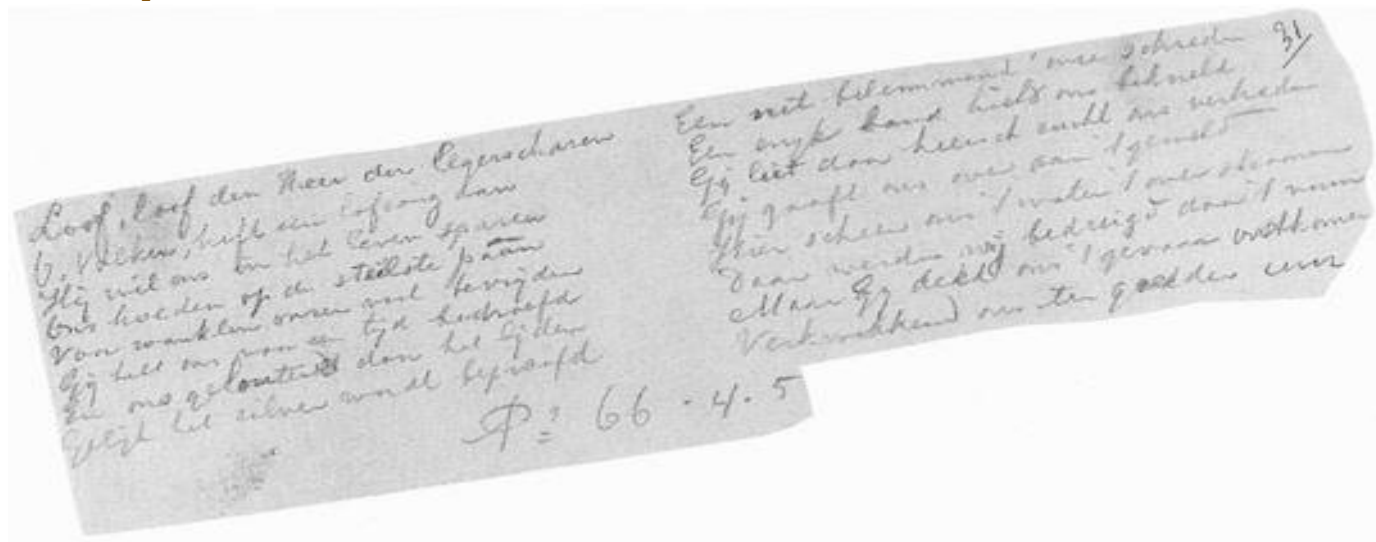 Loof, loof den Heer der legerscharen
O, Volken, heft een lofzang aan
Hij wil ons in het leven sparen
Ons hoeden op de steilste paân
Voor wanklen onzen voet bevrijden
Gij hebt ons voor een tijd bedroefd
En ons gelouterd door het lijden
Gelijk het zilver wordt beproefd
Een net belemmerend' onze schreden
Een enge band hield ons bekneld
Gij liet door heerschzucht ons vertreden
Gij gaaft ons over aan 't geweld
Hier scheen ons 't water t' overstroomen
Daar werden wij bedreigd door 't vuur
Maar Gij deedt ons 't gevaar ontkomen
Verkwikkend ons ter goeder uur
Ps: 66 . 4 . 5
31